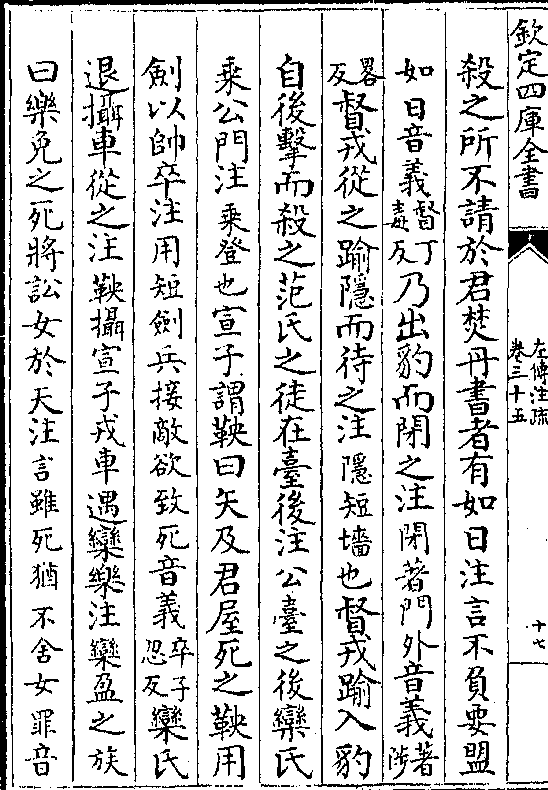 欽定四庫全書
左傳注疏
卷三十五
十七
殺之所不請於君焚丹書者有如日注言不負要盟
如日音義督丁毒反乃出豹而閉之注閉著門外音義著陟
畧反督戎從之踰隱而待之注隱短墻也督戎踰入豹
自後擊而殺之范氏之徒在臺後注公臺之後欒氏
乘公門注乘登也宣子謂鞅曰矢及君屋死之鞅用
劍以帥卒注用短劍兵接敵欲致死音義卒子忽反欒氏
退攝車從之注鞅攝宣子戎車遇欒樂注欒盈之族
曰樂免之死將訟女於天注言雖死猶不舍女罪音